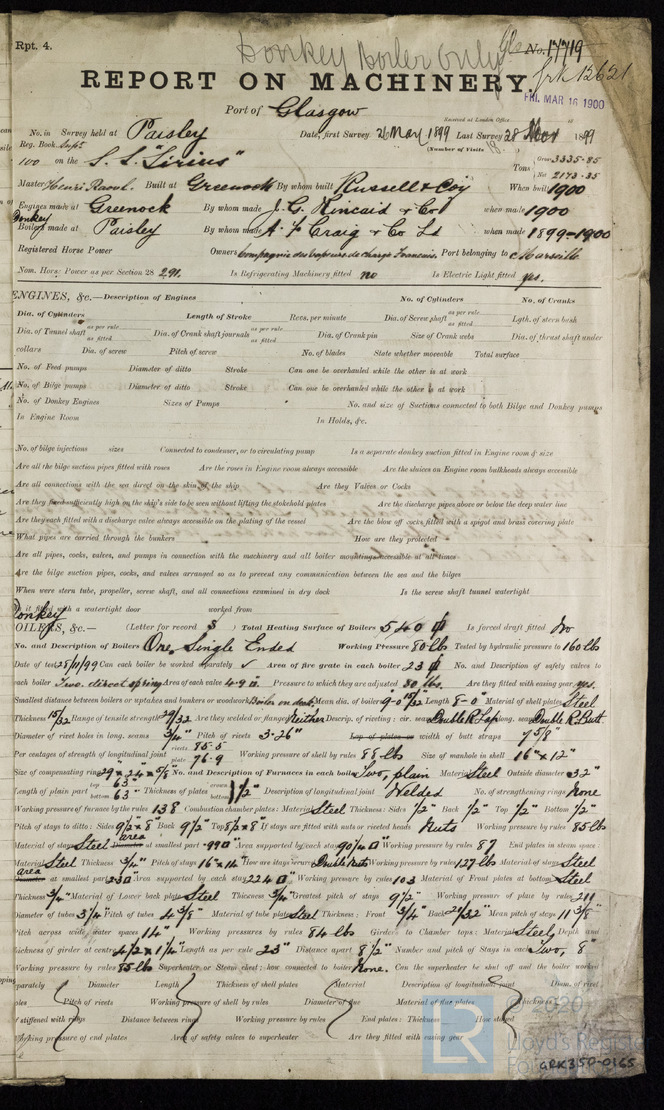 Rpt. 4. Donkey Boiler Only Gls No. 17719
REPORT ON MACHINERY. Grk 12621
FRI. MAR 16 1900
Port of Glasgow
Received at London Office
No. in Survey held at Paisley Date, first Survey 26 May 1899 Last Survey 28 Nov 1899
Reg. Book. Supt (Number of Visits 18
100 on the S.S. "Sirius" Tons Gross 3335.85 Net 2173.35
Master Henri Raoul. Built at Greenock By whom built Russell & Coy When built 1900
Engines made at Greenock By whom made J. G. Kincaid & Co when made 1900
Donkey Boilers made at Paisley By whom made A. F. Craig & Co Ld when made 1899-1900
Registered Horse Power Owners Compagnie des Vapeurs de charge Francais. Port belonging to Marseille
Nom. Horse Power as per Section 28 291. Is Refrigerating Machinery fitted no Is Electric Light fitted yes.
ENGINES, &c.—Description of Engines No. of Cylinders No. of Cranks
Dia. of Cylinders Length of Stroke Revs. per minute Dia. of Screw shaft as per rule as fitted Lgth. of stern bush
Dia. of Tunnel shaft as per rule as fitted Dia. of Crank shaft journals as per rule as fitted Dia. of Crank pin Size of Crank webs Dia. of thrust shaft under
collars Dia. of screw Pitch of screw No. of blades State whether moveable Total surface
No. of Feed pumps Diameter of ditto Stroke Can one be overhauled while the other is at work
No. of Bilge pumps Diameter of ditto Stroke Can one be overhauled while the other is at work
No. of Donkey Engines Sizes of Pumps No. and size of Suctions connected to both Bilge and Donkey pumps
In Engine Room In Holds, &c.
No. of bilge injections sizes Connected to condenser, or to circulating pump Is a separate donkey suction fitted in Engine room & size
Are all the bilge suction pipes fitted with roses Are the roses in Engine room always accessible Are the sluices on Engine room bulkheads always accessible
Are all connections with the sea direct on the skin of the ship Are they Valves or Cocks
Are they fixed sufficiently high on the ship's side to be seen without lifting the stokehold plates Are the discharge pipes above or below the deep water line
Are they each fitted with a discharge valve always accessible on the plating of the vessel Are the blow off cocks fitted with a spigot and brass covering plate
What pipes are carried through the bunkers How are they protected
Are all pipes, cocks, valves, and pumps in connection with the machinery and all boiler mountings accessible at all times
Are the bilge suction pipes, cocks, and valves arranged so as to prevent any communication between the sea and the bilges
When were stern tube, propeller, screw shaft, and all connections examined in dry dock Is the screw shaft tunnel watertight
Is it fitted with a watertight door worked from
Donkey
OILERS, &c.— (Letter for record S) Total Heating Surface of Boilers 540 ф Is forced draft fitted No
No. and Description of Boilers One, Single Ended Working Pressure 80 lbs Tested by hydraulic pressure to 160 lbs
Date of test 28/11/99 Can each boiler be worked separately ✓ Area of fire grate in each boiler 23 ф No. and Description of safety valves to
each boiler Two. direct spring Area of each valve 4.9 □ Pressure to which they are adjusted 80 lbs. Are they fitted with easing gear yes.
Smallest distance between boilers or uptakes and bunkers or woodwork Boiler on deck Mean dia. of boiler 9-0 15/32 Length 8-0" Material of shell plates Steel
Thickness 15/32 Range of tensile strength 29/32 Are they welded or flanged Neither Descrip. of riveting: cir. seams Double R. Lap long. seams Double R. Butt
Diameter of rivet holes in long. seams 3/4" Pitch of rivets 3.26" Lap of plates or width of butt straps 7 5/8"
Per centages of strength of longitudinal joint rivets 85.5 plate 76.9 Working pressure of shell by rules 88 lbs Size of manhole in shell 16" x 12"
Size of compensating ring 29" x 24 x 5/8" No. and Description of Furnaces in each boiler Two, plain Material Steel Outside diameter 32"
Length of plain part top 63" bottom 63" Thickness of plates crown bottom 1/2" Description of longitudinal joint Welded No. of strengthening rings None
Working pressure of furnace by the rules 138 Combustion chamber plates: Material Steel Thickness: Sides 1/2" Back 1/2" Top 1/2" Bottom 1/2"
Pitch of stays to ditto: Sides 9 1/2 x 8" Back 9 1/2" Top 8 1/2 x 8" If stays are fitted with nuts or riveted heads Nuts Working pressure by rules 85 lbs
Material of stays Steel area at smallest part .99 □ Area supported by each stay 90 1/4 □ Working pressure by rules 87 End plates in steam space:
Material Steel Thickness 3/4" Pitch of stays 16" x 14" How are stays secured Double Nuts Working pressure by rules 127 lbs Material of stays Steel
area at smallest part 2.30 Area supported by each stay 224 □ Working pressure by rules 103 Material of Front plates at bottom Steel
Thickness 3/4" Material of Lower back plate Steel Thickness 3/4" Greatest pitch of stays 9 1/2" Working pressure of plate by rules 211
Diameter of tubes 3 1/4" Pitch of tubes 4 3/8" Material of tube plates Steel Thickness: Front 3/4" Back 21/32" Mean pitch of stays 11 3/8"
Pitch across wide water spaces 14" Working pressures by rules 84 lbs Girders to Chamber tops: Material Steel, Depth and
thickness of girder at centre 4 1/2 x 1 1/4" Length as per rule 23" Distance apart 8 1/2" Number and pitch of Stays in each Two, 8"
Working pressure by rules 85 lbs Superheater or Steam chest: how connected to boiler None. Can the superheater be shut off and the boiler worked
separately Diameter Length Thickness of shell plates Material Description of longitudinal joint Diam. of rivet
holes Pitch of rivets Working pressure of shell by rules Diameter of flue Material of flue plates Thickness
If stiffened with rings Distance between rings Working pressure by rules End plates: Thickness How stayed
Working pressure of end plates Area of safety valves to superheater Are they fitted with easing gear
© 2020
Lloyd's Register
GRK350-0165